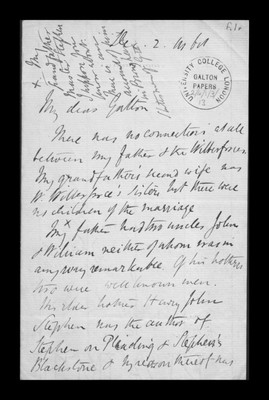 My dear Galton
There was no connection at all
between my father & the Wilberforces
My grandfather's second wife was
W. Wilberforce's sister but there were
no children of the marriage
My father had two uncles, John
& William neither of whom was in
any way remarkable. Of his brothers
two were well known men.
His elder brother Henry John
Stephen was the author of
Stephen on Pleading & Stephen's
Blackstone & by reason thereof was
UNIVERSITY COLLEGE, LONDON
GALTON
PAPERS